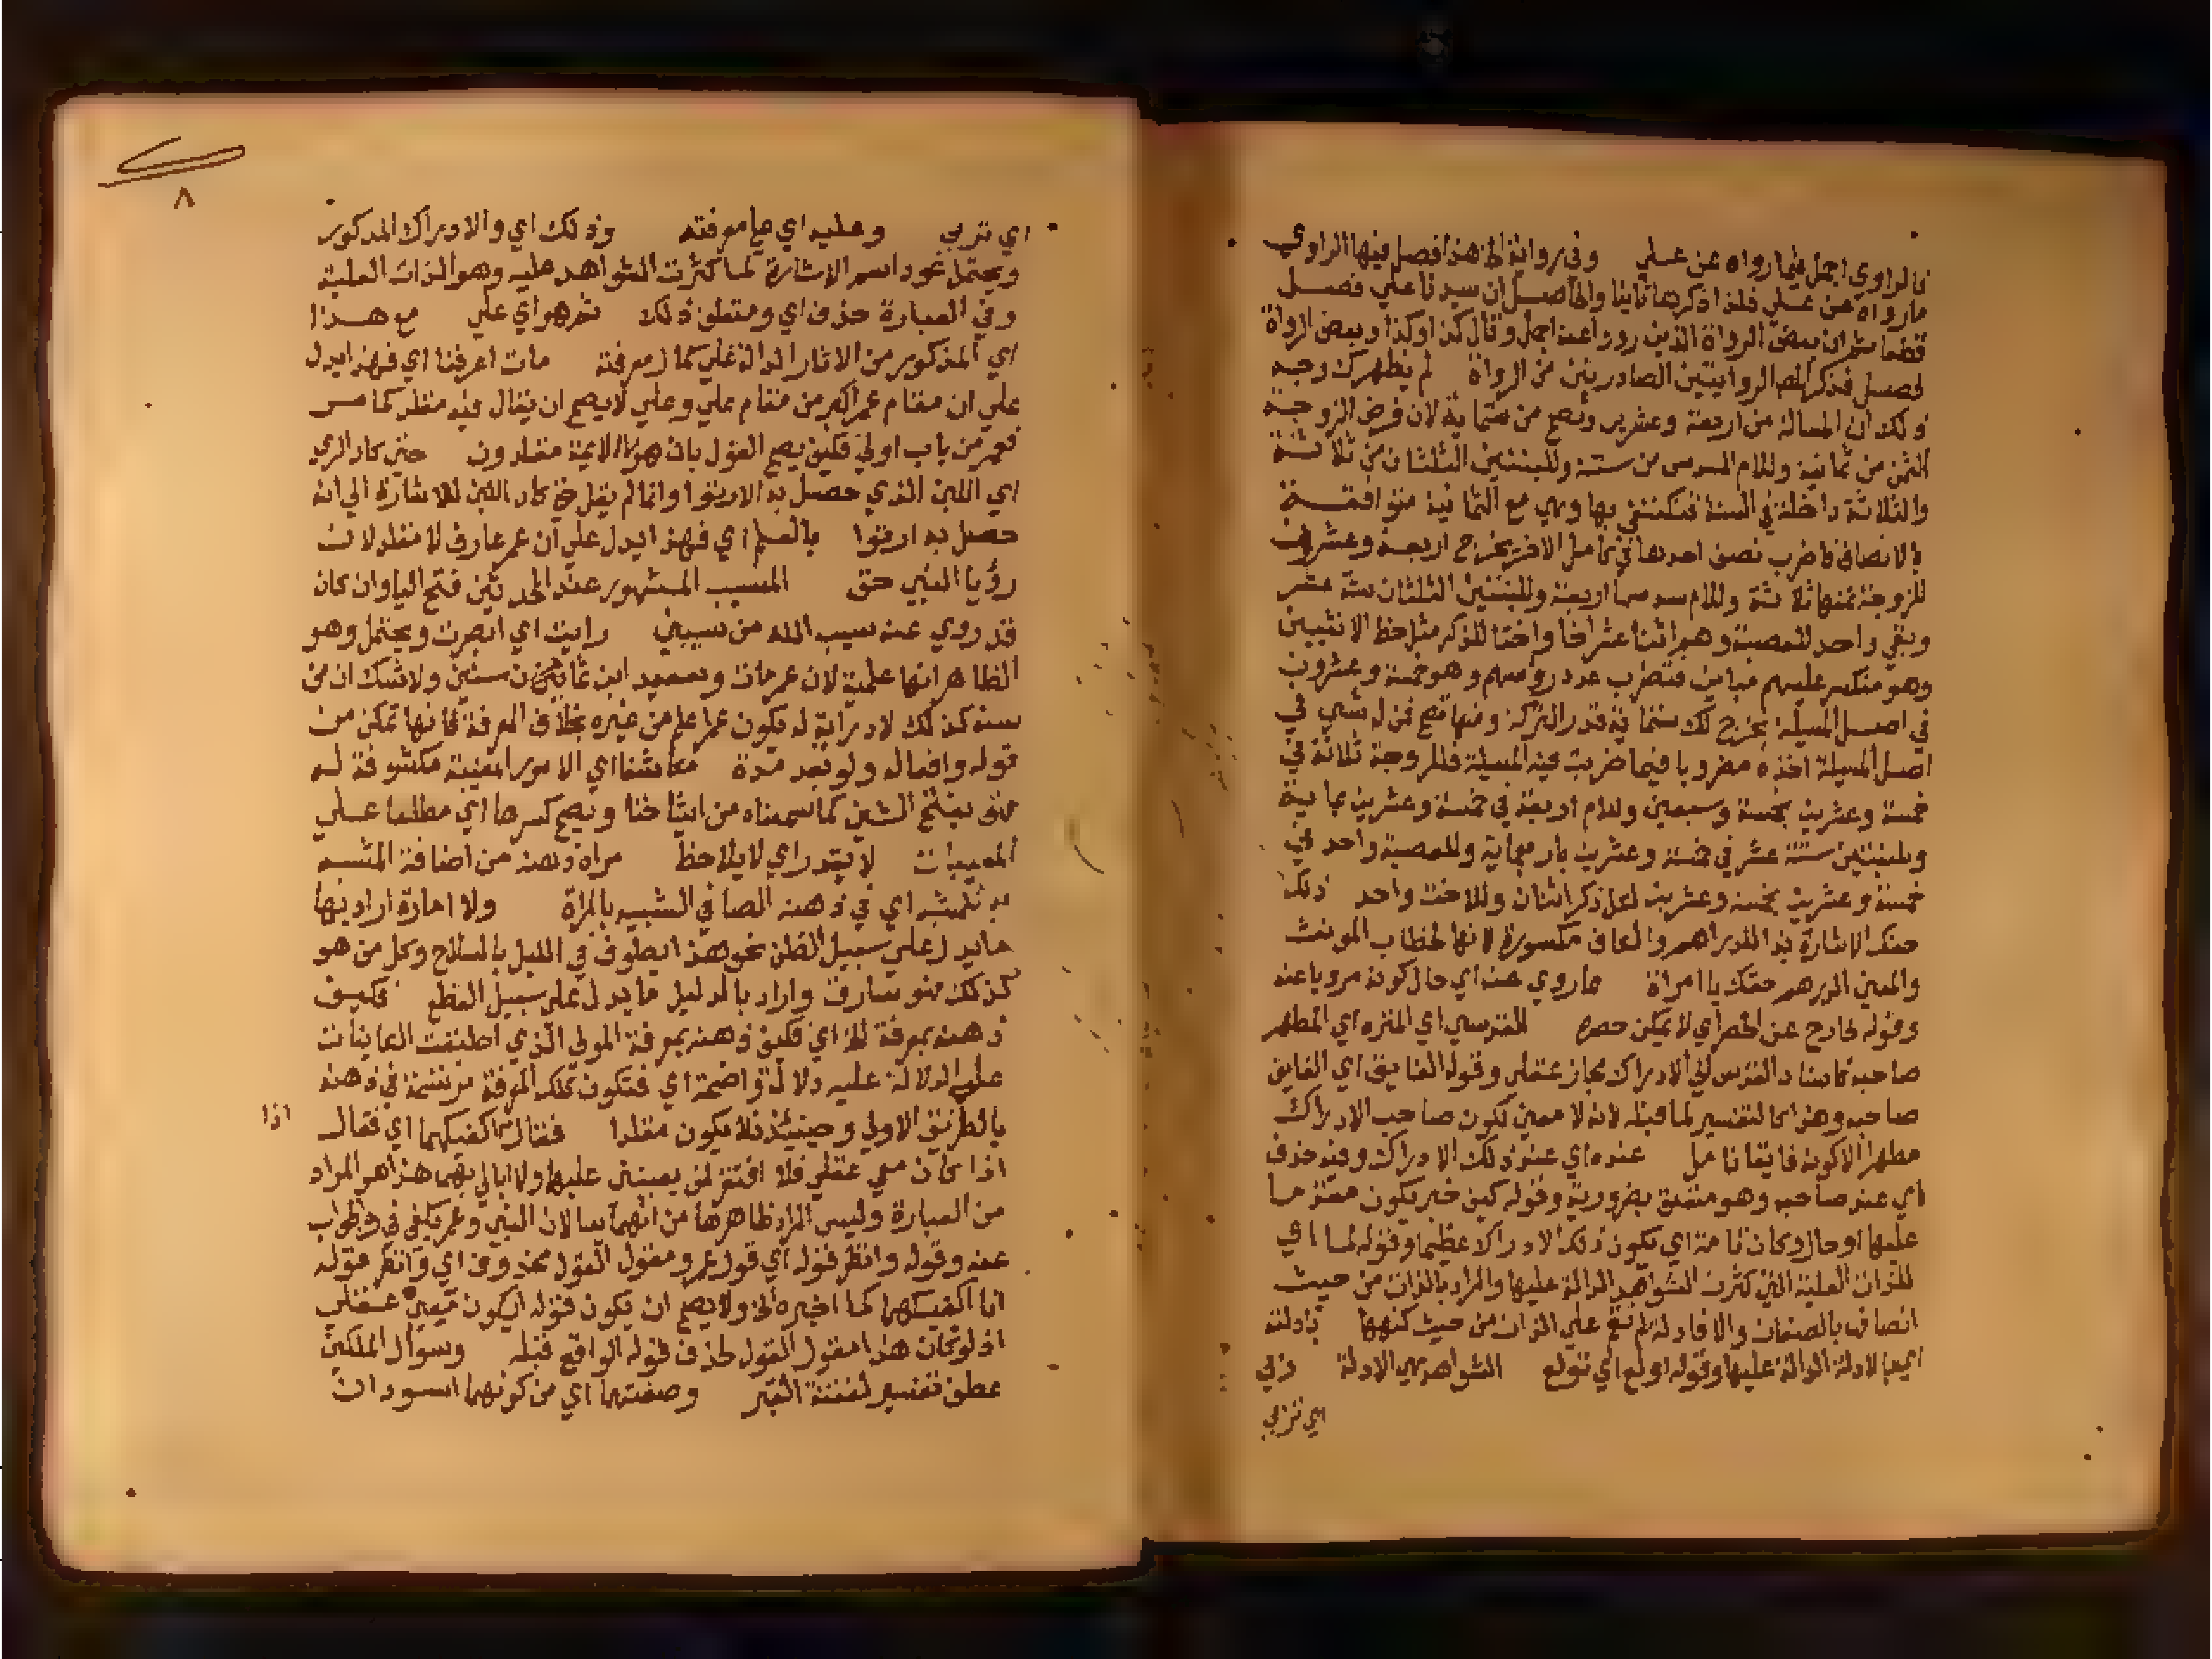 فالراوي اجمل فيما رواه عن علي وفي رواية الخ هذا فصل فيها الراوي
ما رواه عن علي فلذا ذكرها ثانيا والحاصل ان سيدنا علي فصل
قطعا ثم ان بعض الرواة الذين رووا عنه اجمل وقال كذا وكذا وبعض الرواة
فصل فذكر المص الروايتين الصادرتين من الرواة لم يظهر لك وجه
ذلك ان المسالة من اربعة وعشرين وتصح من ستماية لان فرض الزوجة
الثمن من ثمانية وللام السدس من ستة وللبنتين الثلثان من ثلاثة
والثلاثة داخلة في الستة فتكتفي بها وهي مع الثمانية متوافقة
بالانصاف فاضرب نصف احدهما في كامل الاخر يخرج اربعة وعشرون
للزوجة ثمنها ثلاثة وللام سدسها اربعة وللبنتين الثلثان ستة عشر
وبقي واحد للعصبة وهم اثنا عشر اخا واختا للذكر مثل حظ الانثيين
وهو منكسر عليهم مباين فتضرب عدد روسهم وهو خمسة وعشرون
في اصل المسيلة يخرج لك ستماية قدر التركة ومنها تصح فمن له شي في
اصل المسيلة اخذه مضروبا فيما ضربت فيه المسيلة فللزوجة ثلاثة في
خمسة وعشرين بخمسة وسبعين وللام اربعة في خمسة وعشرين بماية
وللبنتين ستة عشر في خمسة وعشرين باربعماية وللعصبة واحد في
خمسة وعشرين بخمسة وعشرين لكل ذكر اثنان وللاخت واحد ذلك
حقك الاشارة بذا للدراهم والكاف مكسورة لانها لخطاب المونث
والمعني الدرهم حقك يا امراة ما روي عنه اي حال كونه مرويا عنه
وقوله خارج عن الحصر اي لا يمكن حصره المقدسي اي المنزه اي المطهر
صاحبه فاسناد القدس الي الادراك مجاز عقلي وقوله الفايق اي الفايق
صاحبه وهذا كالتفسير لما قبله لانه لا معني لكون صاحب الادراك
مطهرا الا كونه فايقا تامل عنده اي عند ذلك الادراك وفيه حذف
اي عند صاحبه وهو متعلق بضرورية وقوله كيف خبر يكون مقدما
عليها او حال وكان تامة اي يكون ذلك الادراك عظيما وقوله لما اي
للذات العلية التي كثرت الشواهد الدالة عليها والمراد بالذات من حيث
اتصافه بالصفات والا فادلة لم تقع علي الذات من حيث كنهها بادلته
اي بالادلة الدالة عليها وقوله اولع اي تولع الشواهد هي الادلة
اي تربي
٨
اي تربي وعليه اي علي معرفته وذلك اي والادراك المذكور
ويحتمل عود اسم الاشارة لما كثرت الشواهد عليه وهو الذات العلية
وفي العبارة حذف اي ومتعلق ذلك مع هذا
اي المذكور من الاثار الدالة علي كمال معرفته اي فهذا يدل
علي ان مقام عمر اكبر من مقام علي وعلي لا يصح ان يقال فيه مقلد كما مر
فعمر من باب اولي فكيف يصح القول بان هولاء الايمة مقلدون حتي كاد الري
اي اللبن الذي حصل به الارتوا وانما لم يقل حتي كاد اللبن للاشارة الي انه
حصل به ارتوا بالعلم اي فهذا يدل علي ان عمر عارف لا مقلد لان
رؤيا النبي حق المسيب المشهور عند المحدثين فتح اليا وان كان
قد روي عنه سيب الله من سيبني رايت اي ابصرت ويحتمل وهو
الظاهر انها علمية لان عمر مات وسعيد ابن ثمان سنين ولا شك ان من
سنه كذلك لا دراية له بكون عمر اعلم من غيره بخلاف المعرفة فانها تمكن من
قوله وافعاله ولو بعد مدة مكاشفا اي الامور المغيبة مكشوفة له
فهو بفتح الشين كما سمعناه من اشياخنا ويصح كسرها اي مطلعا علي
المغيبات لا يقدر اي لا يلاحظ مراة ذهنه من اضافة المشبه
به للمشبه اي في ذهنه الصافي الشبيه بالمراة ولا امارة اراد بها
ما يدل علي سبيل الظن نحو هذا يطوف في الليل بالسلاح وكل من هو
كذلك فهو سارق واراد بالدليل ما يدل علي سبيل القطع فكيف
ذهنه بمعرفة الله اي فكيف ذهنه بمعرفة المولي الذي اطبقت الكاينات
علي الدلالة عليه دلالة واضحة اي فتكون تلك المعرفة مرتسمة في ذهنه
بالطريق الاولي وحينيذ فلا يكون مقلدا فقال اكفيكهما اي فقال اذا
اذا كان معي عقلي فلا افتقر لمن يعينني عليها ولا ابالي بهما هذا هو المراد
من العبارة وليس المراد ظاهرها من انهما يسالان النبي وعمر يكفي في الجواب
عنه وقوله وانظر قوله اي قول عمر ومقول القول محذوف اي وانظر قوله
انا اكفيكهما لما اخبره الخ ولا يصح ان يكون قوله ايكون معي عقلي
اذ لو كان هذا مقول القول لحذف قوله الواقع قبله وسوال الملكين
عطف تفسير لفتنة القبر وصفتهما اي من كونهما اسودان